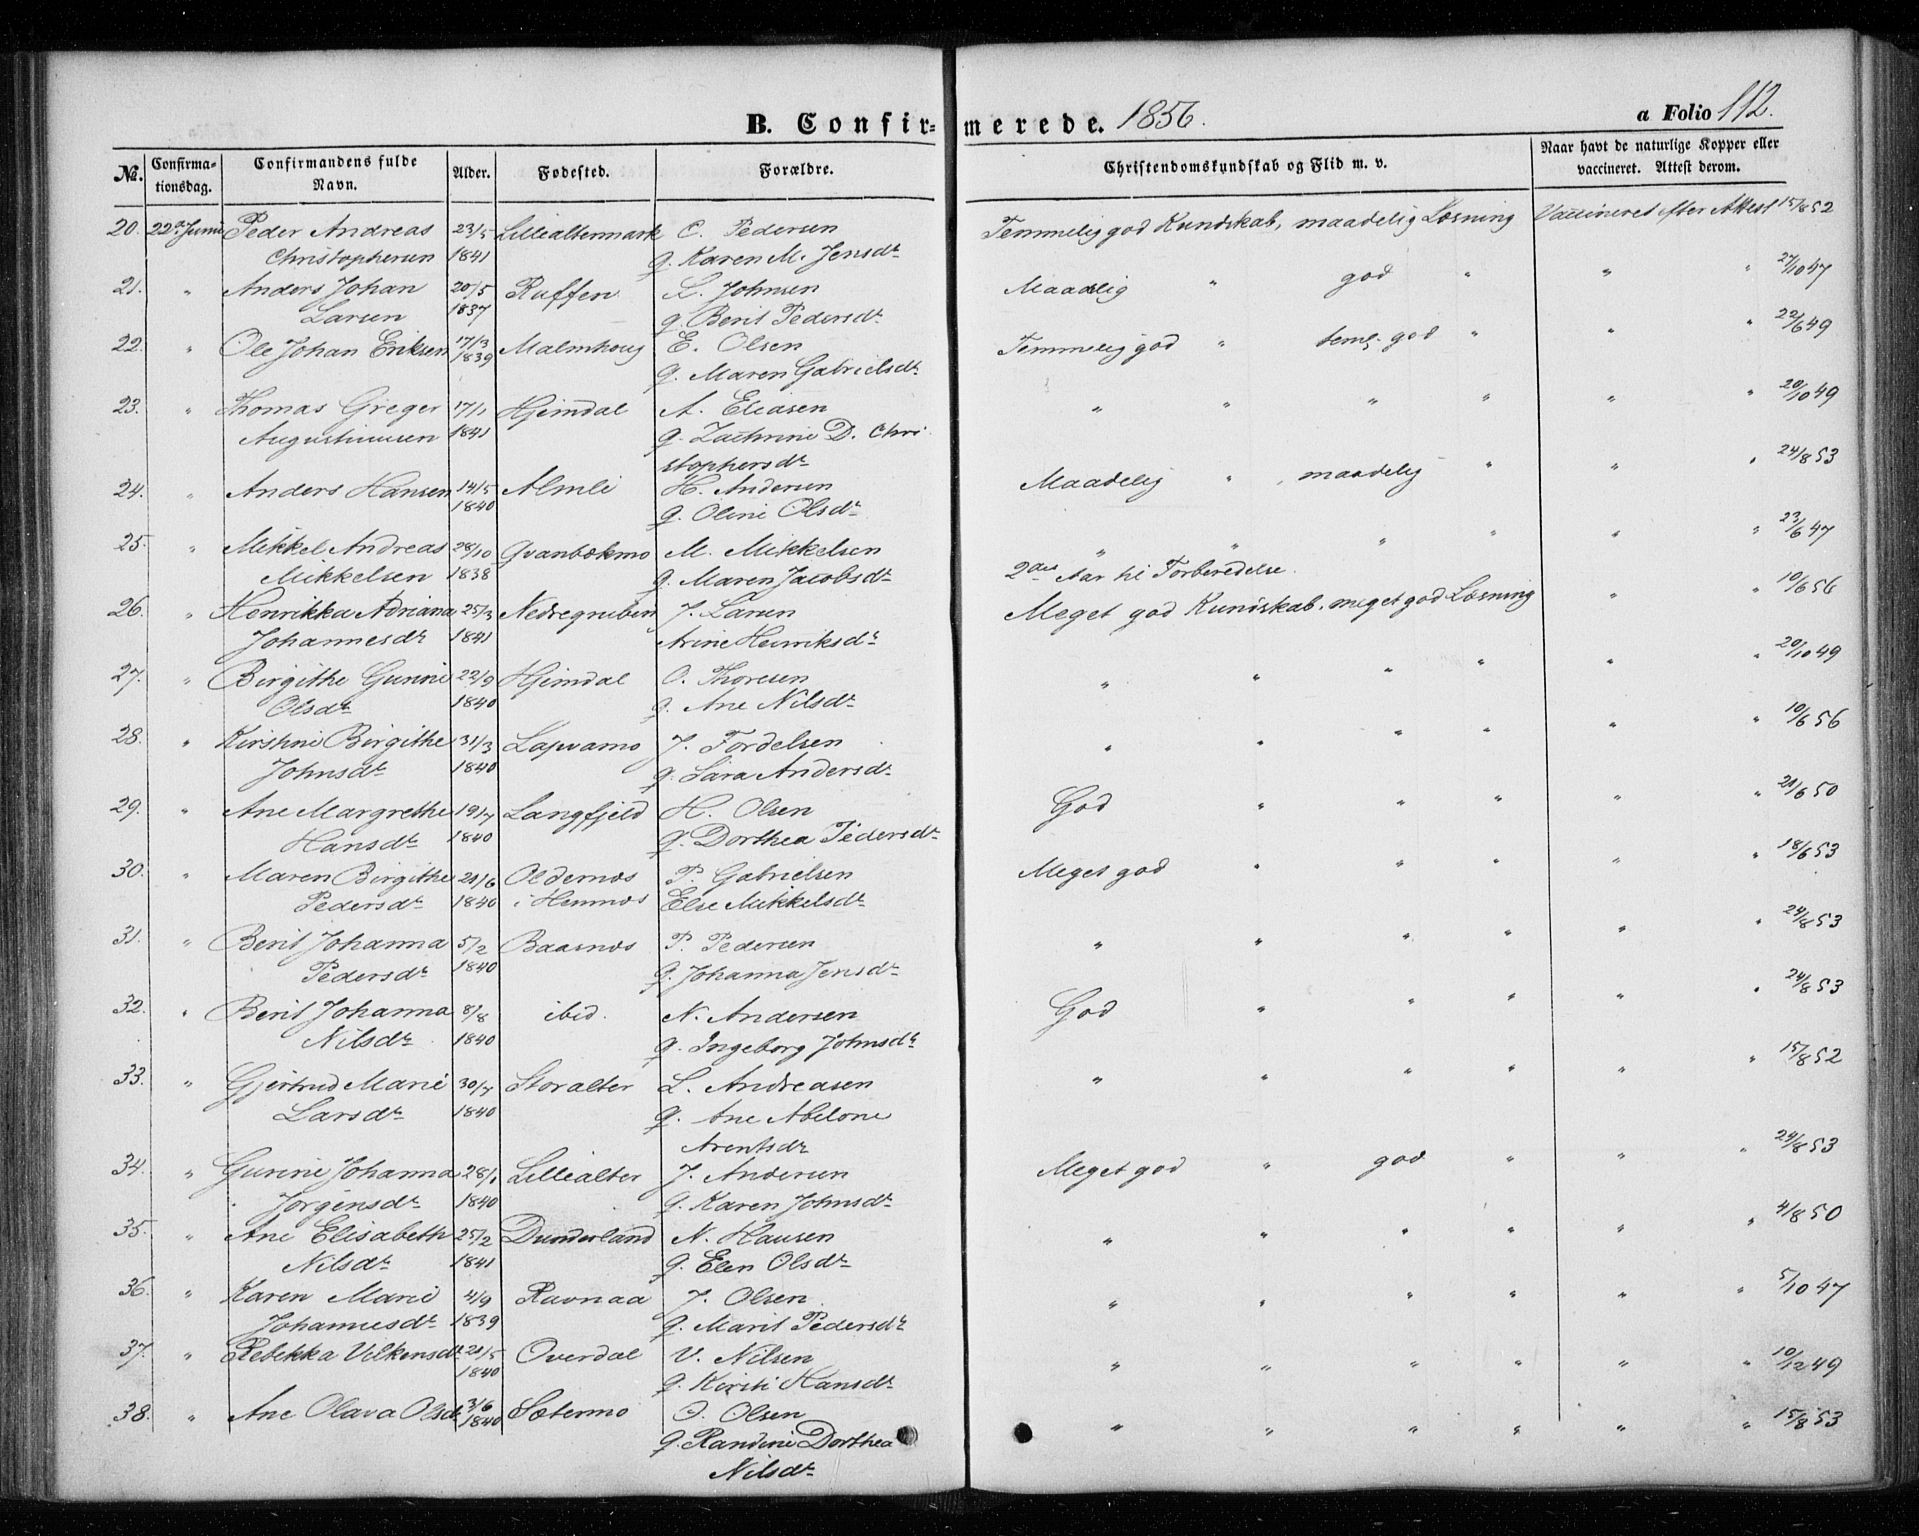 B. Confirmerede. 1856. a Folio 112.
No. Confirmationsdag. Confirmandens fulde Navn. Alder. Fødested. Forældre. Christendomskundskab og Flid m. v. Naar havt de naturlige Kopper eller vaccineret. Attest derom.
20. 22de Junii Peder Andreas 23/5 Lillealtermark C. Pedersen Temmelig god Kundskab, maadelig Læsning Vaccineret efter Attest 15/8 52
Christophersen 1841 q. Karen M. Jensdr
21. " Anders Johan 20/5 Røffen L. Johnsen Maadelig " god " " " 27/10 47
Larsen 1837 q. Berit Pedersdr
22. " Ole Johan Eriksen 17/3 Malmhoug E. Olsen Temmelig god " teml. god " " " 22/6 49
1839 q. Maren Gabrielsdr
23. " Thomas Greger 17/1 Hjemdal A. Eliasen " " " " " " 20/10 49
Augustinusen 1841 q. Zathrine D. Chri
stophersdr
24. " Anders Hansen 14/5 Almli H. Andersen Maadelig " , maadelig " " " 24/8 53
1840 q. Oline Olsdr
25. " Mikkel Andreas 28/10 Qvanbækmo M. Mikkelsen " " " " " " 23/6 47
Mikkelsen 1838 q. Maren Jacobsdr 2det Aar til Forberedelse.
26. " Henrikka Adriana 25/3 Nedregruben J. Larsen Meget god Kundskab, meget god Læsning " " 10/6 56
Johannesdr 1841 Arine Henriksdr
27. " Birgithe Gurine 22/9 Hjemdal O. Thoresen " " " " " " 20/10 49
Olsdr 1840 q. Ane Nilsdr
28. " Kirstine Birgithe 31/3 Lapvamo J. Fordelsen " " " " " " 10/6 56
Johnsdr 1840 q. Sara Andersdr
29. " Ane Margrethe 19/7 Langfjeld H. Olsen God " " " " " 21/6 50
Hansdr 1840 q. Dorthea Pedersdr
30. " Maren Birgithe 21/6 Oldernæs P. Gabrielsen Meget god " " " " " 18/6 53
Pedersdr 1840 i Hemnæs Else Mikkelsdr
31. " Berit Johanna 5/2 Baasnæs P. Pedersen " " " " " " 24/8 53
Pedersdr 1840 q. Johanna Jensdr
32. " Berit Johanna 8/8 ibid. N. Andersen God " " " " " 24/8 53
Nilsdr 1840 q. Ingeborg Johnsdr
33. " Gjertrud Marie 30/7 Storalter L. Andreasen " " " " " " 15/8 52
Larsdr 1840 q. Ane Abelone
Arentsdr
34. " Gurine Johanna 28/1 Lillealter J. Andersen Meget god " god " " " 24/8 53
Jørgensdr 1840 q. Karen Johnsdr
35. " Ane Elisabeth 25/2 Dunderland N. Hansen " " " " " " 4/8 50
Nilsdr 1841 q. Elen Olsdr
36. " Karen Marie 4/9 Ravnaa J. Olsen " " " " " " 5/10 47
Johannesdr 1839 q. Marit Pedersdr
37. " Rebekka Vilkensdr 21/5 Overdal V. Nilsen " " " " " " 10/12 49
1840 q. Kirsti Hansdr
38. " Ane Olava Olsdr 3/6 Sætermo O. Olsen " " " " " " 15/8 53
1840 q. Randine Dorthea
Nilsdr